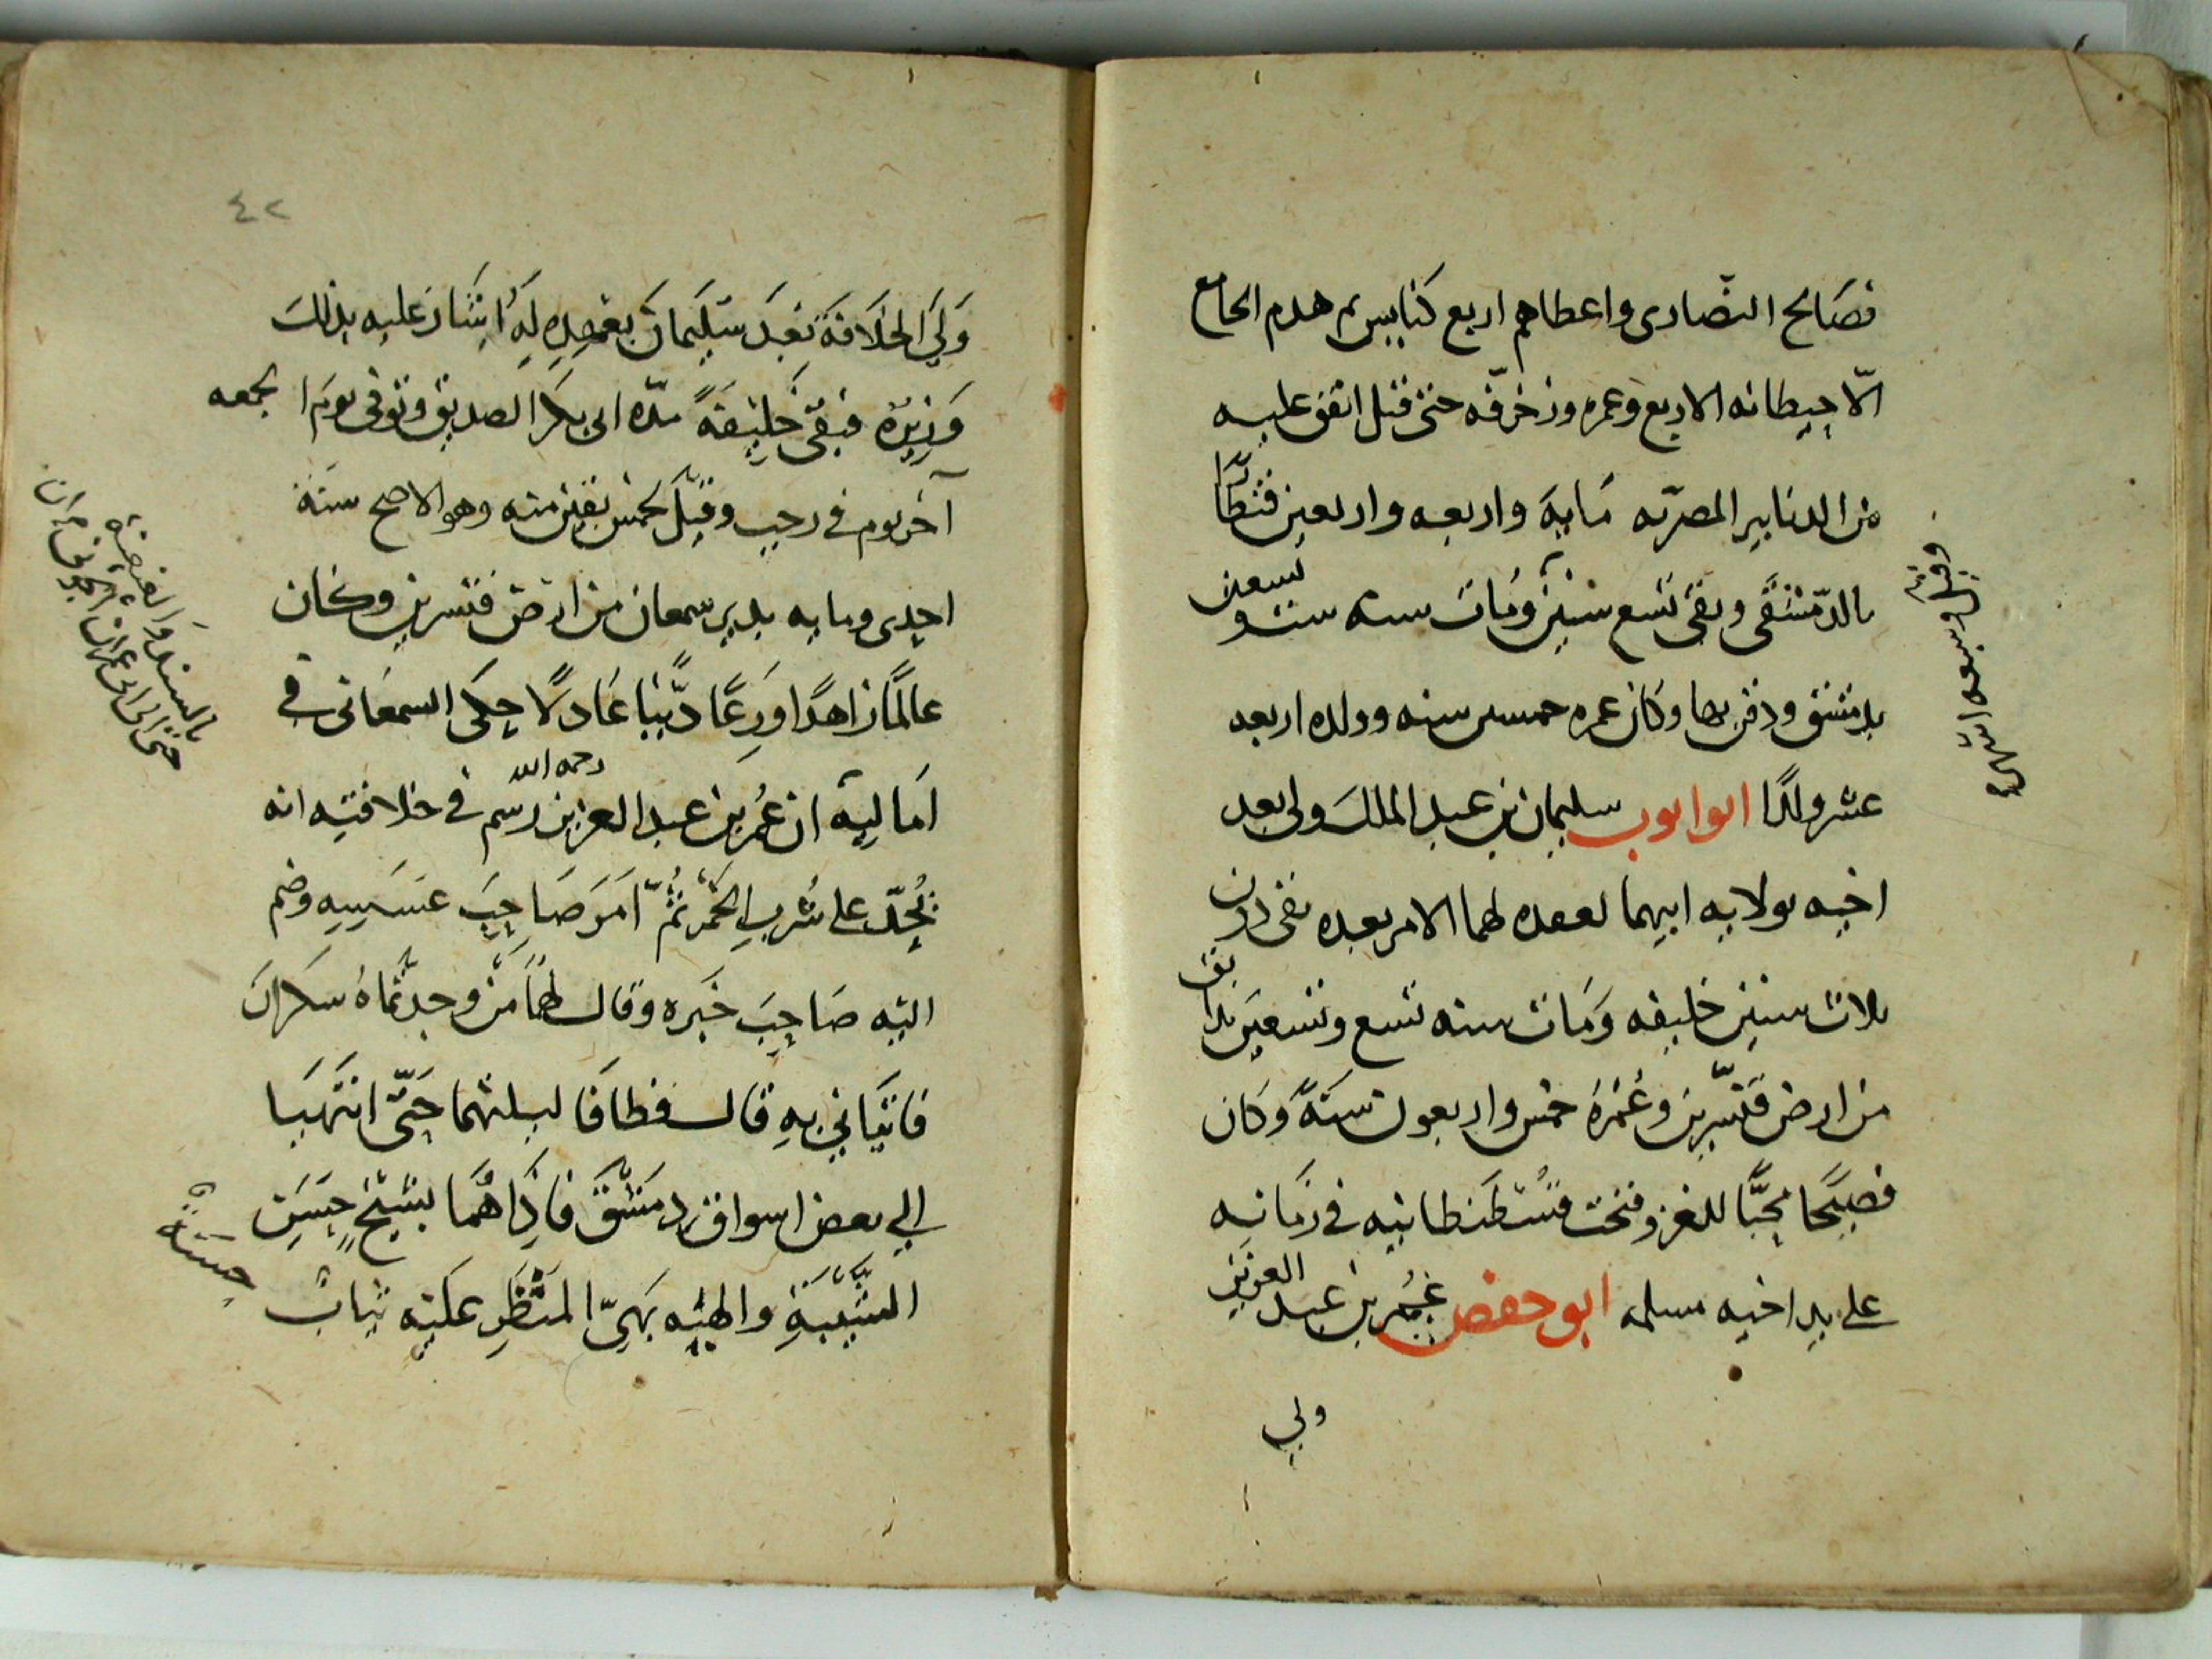 فصَالح النصّارى واعطاهم اربع كنايس ثم هدم الجامع
الّا حيطانه الاربع وعمره وزخرفه حتى قيل انفق عليه
من الدنانير المصريّه مَايةَ واربعه واربعين قنطارًا
بالدّمشقى وبقى تسع سنين ومَات سنه ست وتسعين
بدمشق ودفن بها وكان عمره خمسين سنه وولده اربعه
عشر ولدًا ابو ايوب سليمان بن عبد الملك ولى بعد
اخيه بولايه ابيهما لعهده لهما الامر بعده بقى دون
ثلاث سنين خليفه وَمَات سنه تسع وتسعين بدابق
من ارض قنّسرين وعُمْرهُ خمس واربعون سَنَةً وكان
فصيحًا مُحِبًّا للغزو فتحت قُسْطَنطانيه في زمَانه
على يد اخيه مسلمه ابو حفص عُمَر بن عبد العزيز
ولي
وقيل وسبعه اشهر
٤٢
وَلِيَ الخلَافَةَ بَعْدَ سُلَيمَانَ بعَهْدِهِ لَهُ اشَارَ عليه بذلكَ
وَزيرُه فبَقى خَليفةً مدّه ابى بكر الصديق وتوفى يومَ الجمعه
آخر يوم في رجب وقيل لخمس بقين منه وهو الاصح سنة
احدى ومايه بدير سمعان من ارض قنسرين وكان
عالمًا زاهدًا وَرِعًا دَيّنًا عَادلًا حكى السمعَانى في
اَماليه ان عُمر بن عبد العزيز رحمه الله رسم في خلافتِه انه
يُحَدّ على شُربِ الخمر ثمّ اَمَرَ صَاحِبَ عَسَسِه وضم
اليه صَاحِبَ خَبَره وقال لهمَا مَن وجدتمَاهُ سكران
فاتيَاني به قال فطافَا ليلتهما حَتّى انتهَيَا
الي بعض اسواق دمَشقَ فاذَا هُمَا بشيخٍ حَسَنِ
الشَّيْبَةِ والهيئه بَهيّ المنظَرِ عَليه ثيابٌ
حسنةٌ